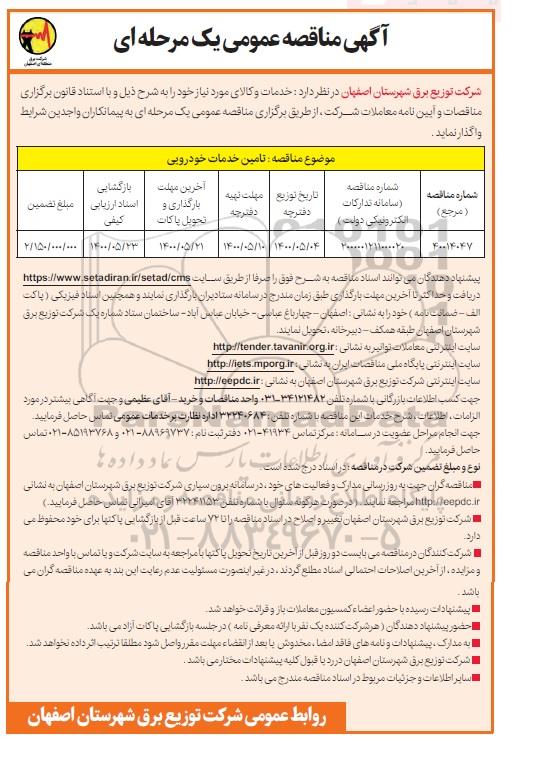 آگهی مناقصه عمومی یک مرحله ای
شرکت برق
منطقه‌ای اصفهان
شرکت توزیع برق شهرستان اصفهان در نظر دارد : خدمات و کالای مورد نیاز خود را به شرح ذیل و با استناد قانون برگزاری
مناقصات و آیین نامه معاملات شرکت ، از طریق برگزاری مناقصه عمومی یک مرحله ای به پیمانکاران واجدین شرایط
واگذار نماید .
موضوع مناقصه : تامین خدمات خودرویی
شماره مناقصه ( مرجع )
شماره مناقصه (سامانه تدارکات الکترونیکی دولت )
تاریخ توزیع دفترچه
مهلت تهیه دفترچه
آخرین مهلت بارگذاری و تحویل پاکات
بازگشایی اسناد ارزیابی کیفی
مبلغ تضمین
۴۰۰۱۴۰۴۷
۲۰۰۰۰۰۱۲۱۱۰۰۰۰۲۰
۱۴۰۰/۰۵/۰۴
۱۴۰۰/۰۵/۱۰
۱۴۰۰/۰۵/۲۱
۱۴۰۰/۰۵/۲۳
۲/۱۵۰/۰۰۰/۰۰۰
پیشنهاد دهندگان می توانند اسناد مناقصه به شرح فوق را صرفا از طریق سایت https://www.setadiran.ir/setad/cms
دریافت و حداکثر تا آخرین مهلت بارگذاری طبق زمان مندرج در سامانه ستادیران بارگذاری نمایند و همچنین اسناد فیزیکی ( پاکت
الف - ضمانت نامه ) خود را به نشانی : اصفهان - چهارباغ عباسی - خیابان عباس آباد - ساختمان ستاد شماره یک شرکت توزیع برق
شهرستان اصفهان طبقه همکف - دبیرخانه ، تحویل نمایند.
سایت اینترنتی معاملات توانیر به نشانی : http://tender.tavanir.org.ir
سایت اینترنتی پایگاه ملی مناقصات ایران به نشانی : http://iets.mporg.ir
سایت اینترنتی شرکت توزیع برق شهرستان اصفهان به نشانی : http://eepdc.ir
جهت کسب اطلاعات بازرگانی با شماره تلفن ۳۴۱۲۱۴۸۲-۰۳۱ واحد مناقصات و خرید - آقای عظیمی و جهت آگاهی بیشتر در مورد
الزامات ، اطلاعات ، شرح خدمات این مناقصه با شماره تلفن : ۳۲۲۴۰۶۸۴ اداره نظارت بر خدمات عمومی تماس حاصل فرمایید.
جهت انجام مراحل عضویت در سامانه : مرکز تماس ۴۱۹۳۴-۰۲۱ دفتر ثبت نام : ۸۸۹۶۹۷۳۷-۰۲۱ و ۸۵۱۹۳۷۶۸-۰۲۱ تماس
حاصل فرمایید.
نوع و مبلغ تضمین شرکت در مناقصه : در اسناد درج شده است .
مناقصه گران جهت به روز رسانی مدارک و فعالیت های خود ، در سامانه برون سپاری شرکت توزیع برق شهرستان اصفهان به نشانی
http://eepdc.ir مراجعه نمایند . ( در صورت هرگونه سئوال با شماره تلفن ۳۲۲۴۱۱۵۳ آقای امیرانی تماس حاصل فرمایید.)
شرکت توزیع برق شهرستان اصفهان تغییر و اصلاح در اسناد مناقصه را تا ۷۲ ساعت قبل از بازگشایی پاکتها برای خود محفوظ می
دارد.
شرکت کنندگان در مناقصه می بایست دو روز قبل از آخرین تاریخ تحویل پاکتها با مراجعه به سایت شرکت و یا تماس با واحد مناقصه
و مزایده ، از آخرین اصلاحات احتمالی اسناد مطلع گردند ، در غیر اینصورت مسئولیت عدم رعایت این بند به عهده مناقصه گران می
باشد .
پیشنهادات رسیده با حضور اعضاء کمسیون معاملات باز و قرائت خواهد شد.
حضور پیشنهاد دهندگان ( هر شرکت کننده یک نفر با ارائه معرفی نامه ) در جلسه بازگشایی پاکات آزاد می باشد.
به مدارک ، پیشنهادات و نامه های فاقد امضا ، مخدوش یا بعد از انقضاء مهلت مقرر واصل شود مطلقا ترتیب اثر داده نخواهد شد.
شرکت توزیع برق شهرستان اصفهان در رد یا قبول کلیه پیشنهادات مختار می باشد .
سایر اطلاعات و جزئیات مربوط در اسناد مناقصه مندرج می باشد .
روابط عمومی شرکت توزیع برق شهرستان اصفهان
۰۲۱-۸۸۳۴۹۶۷۰-۵